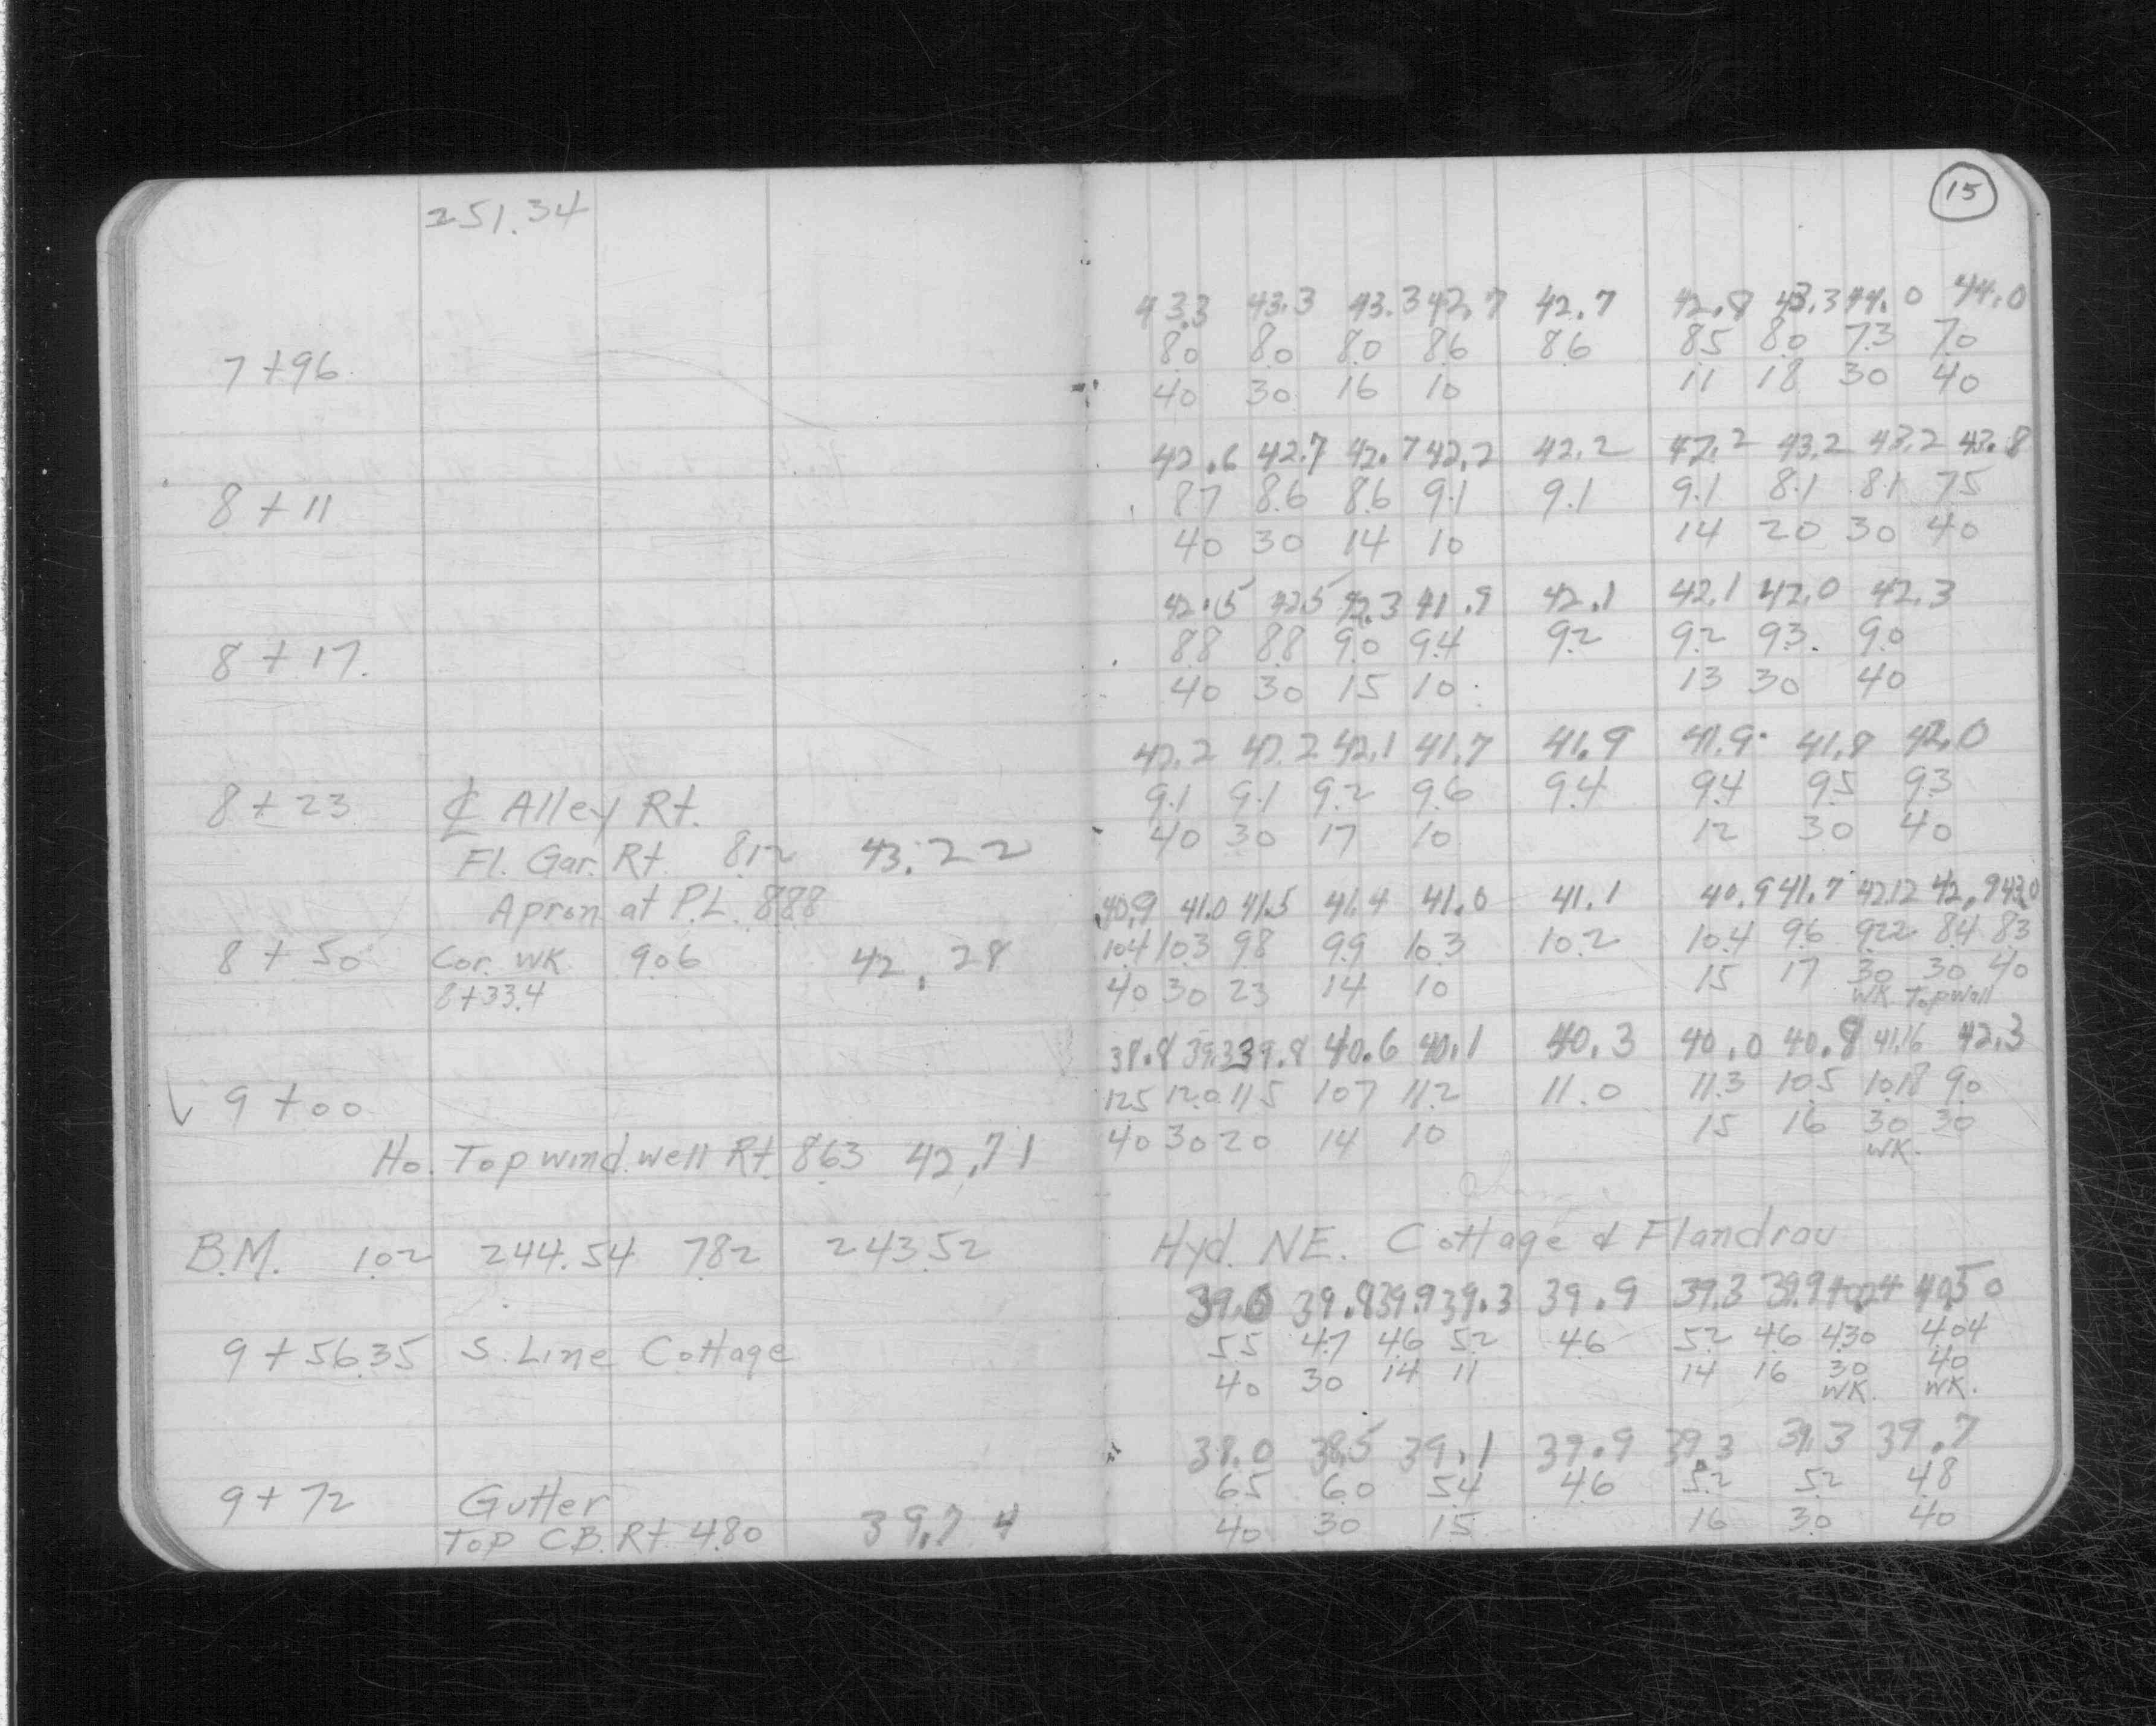 15
251.34
43.3 43.3 43.3 42.7 42.7 42.8 43.3 44.0 44.0
7+96 8.0 8.0 8.0 8.6 8.6 8.5 8.0 7.3 7.0
40 30 16 10 11 18 30 40
42.6 42.7 42.7 42.2 42.2 42.2 43.2 43.2 43.8
8+11 8.7 8.6 8.6 9.1 9.1 9.1 8.1 8.1 7.5
40 30 14 10 14 20 30 40
42.5 42.5 42.3 41.9 42.1 42.1 42.0 42.3
8+17. 8.8 8.8 9.0 9.4 9.2 9.2 9.3 9.0
40 30 15 10 13 30 40
42.2 42.2 42.1 41.7 41.9 41.9 41.8 42.0
8+23 ℄ Alley Rt. 9.1 9.1 9.2 9.6 9.4 9.4 9.5 9.3
Fl. Gar. Rt. 8.12 43.22 40 30 17 10 12 30 40
Apron at P.L. 8.88 40.9 41.0 41.5 41.4 41.0 41.1 40.9 41.7 42.12 42.9 43.0
8+50 Cor. WK 9.06 42.28 10.4 10.3 9.8 9.9 10.3 10.2 10.4 9.6 9.22 8.4 8.3
8+33.4 40 30 23 14 10 15 17 30 30 40
WK Top Wall
38.8 39.3 39.8 40.6 40.1 40.3 40.0 40.8 41.16 42.3
9+00 12.5 12.0 11.5 10.7 11.2 11.0 11.3 10.5 10.18 9.0
Ho. Top wind. well Rt 8.63 42.71 40 30 20 14 10 15 16 30 30
WK.
B.M. 1.02 244.54 7.82 243.52 Hyd. NE. Cottage & Flandrau
39.0 39.8 39.9 39.3 39.9 39.3 39.9 40.24 40.50
9+56.35 S. Line Cottage 5.5 4.7 4.6 5.2 4.6 5.2 4.6 4.30 4.04
40 30 14 11 14 16 30 40
WK. WK.
38.0 38.5 39.1 39.9 39.3 39.3 39.7
9+72 Gutter 6.5 6.0 5.4 4.6 5.2 5.2 4.8
Top C.B. Rt 4.80 39.74 40 30 15 16 30 40